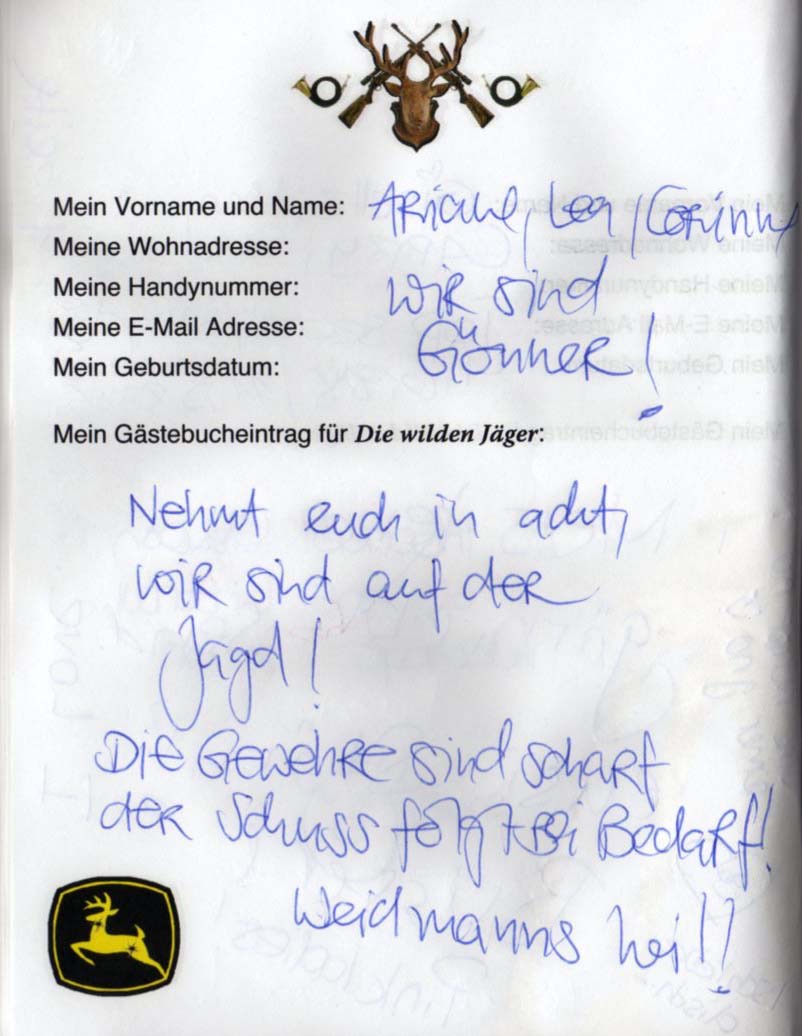 Mein Vorname und Name: Ariane/Lea/Corinne
Meine Wohnadresse:
Meine Handynummer: Wir sind
Meine E-Mail Adresse: Gönner!
Mein Geburtsdatum:
Mein Gästebucheintrag für Die wilden Jäger:
Nehmt euch in acht,
wir sind auf der
Jagd!
Die Gewehre sind scharf
der Schuss folgt bei Bedarf!
Weidmanns heil!